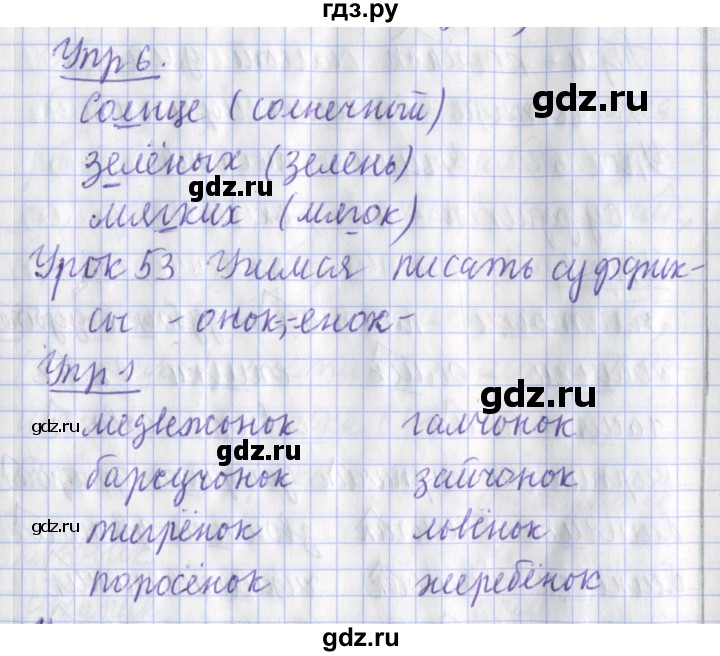 гдз.ру
Упр 6.
Солнце (солнечный)
gdz.ru
зелёных (зелень)
gdz.ru
мягких (мягок)
Урок 53 Учимся писать суффик-
сы -онок-, -енок-
Упр 1
gdz.ru
gdz.ru медвежонок галчонок
gdz.ru
барсучонок зайчонок
gdz.ru тигрёнок львёнок
поросёнок жеребёнок
gdz.ru